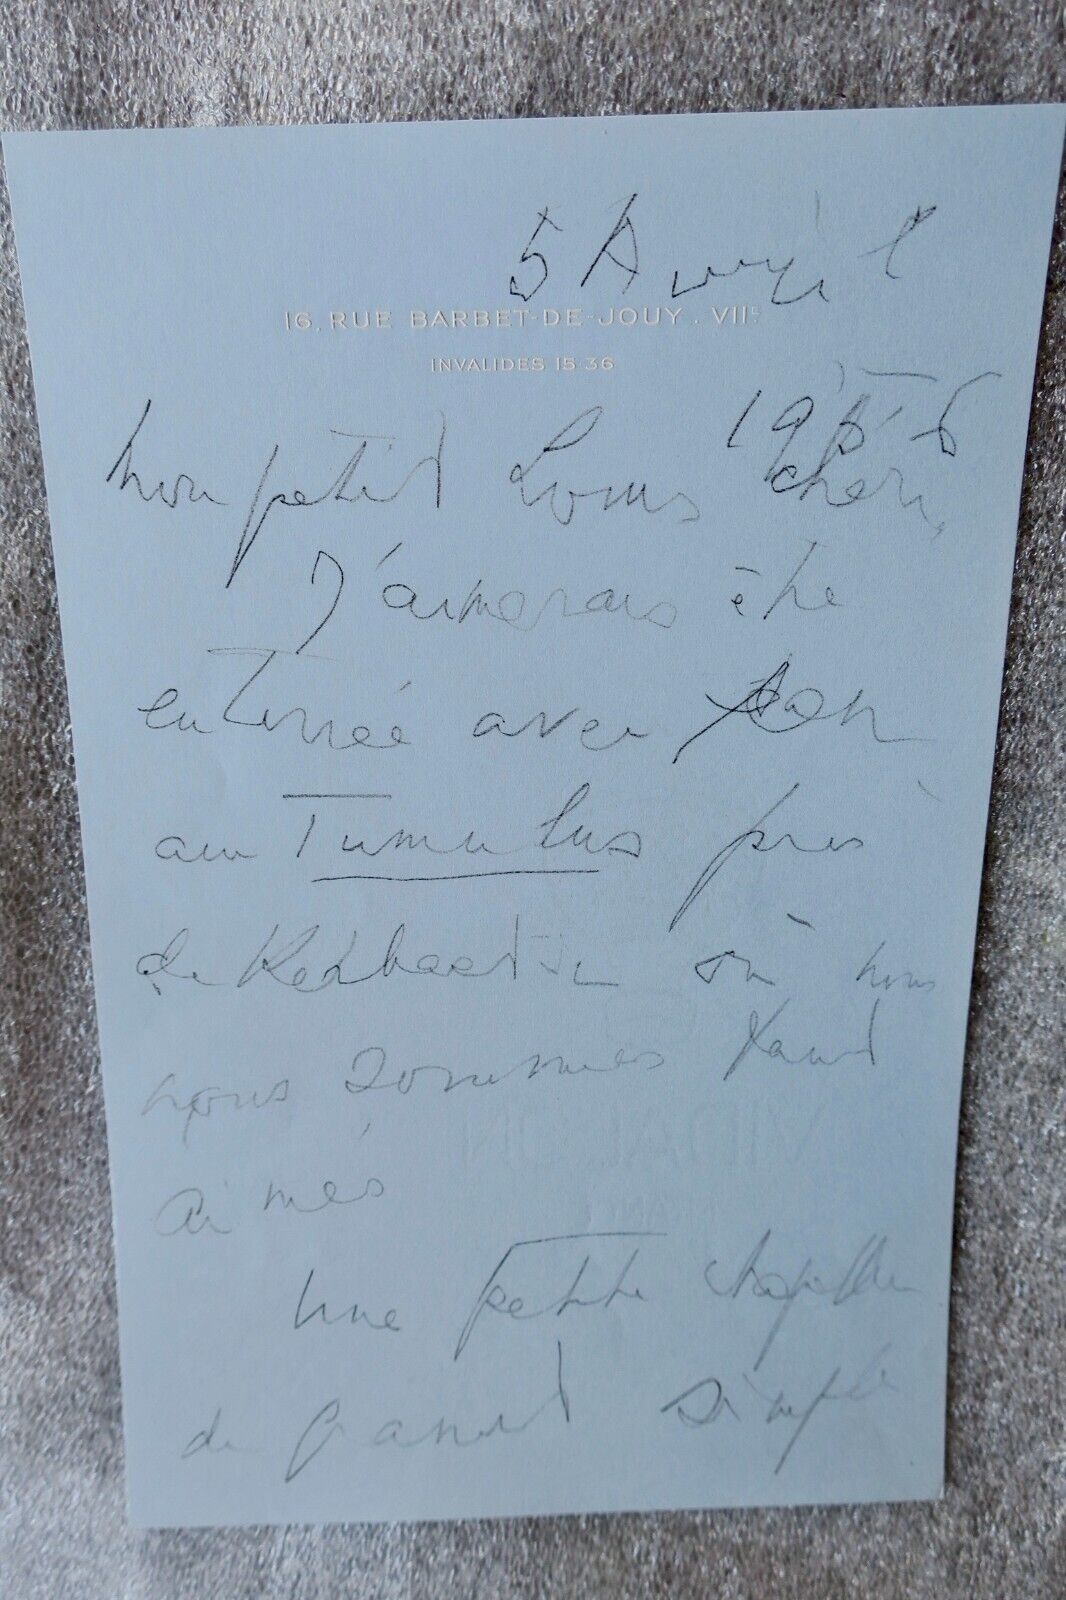 5 Avril
16, RUE BARBET-DE-JOUY. VIIE
INVALIDES 15-36
1956
Mon petit Louis chéri,
J'aimerais être
enterrée avec
au Tumulus près
de où nous
nous sommes tant
aimés
Une petite chapelle
de granit simple
VIDALON